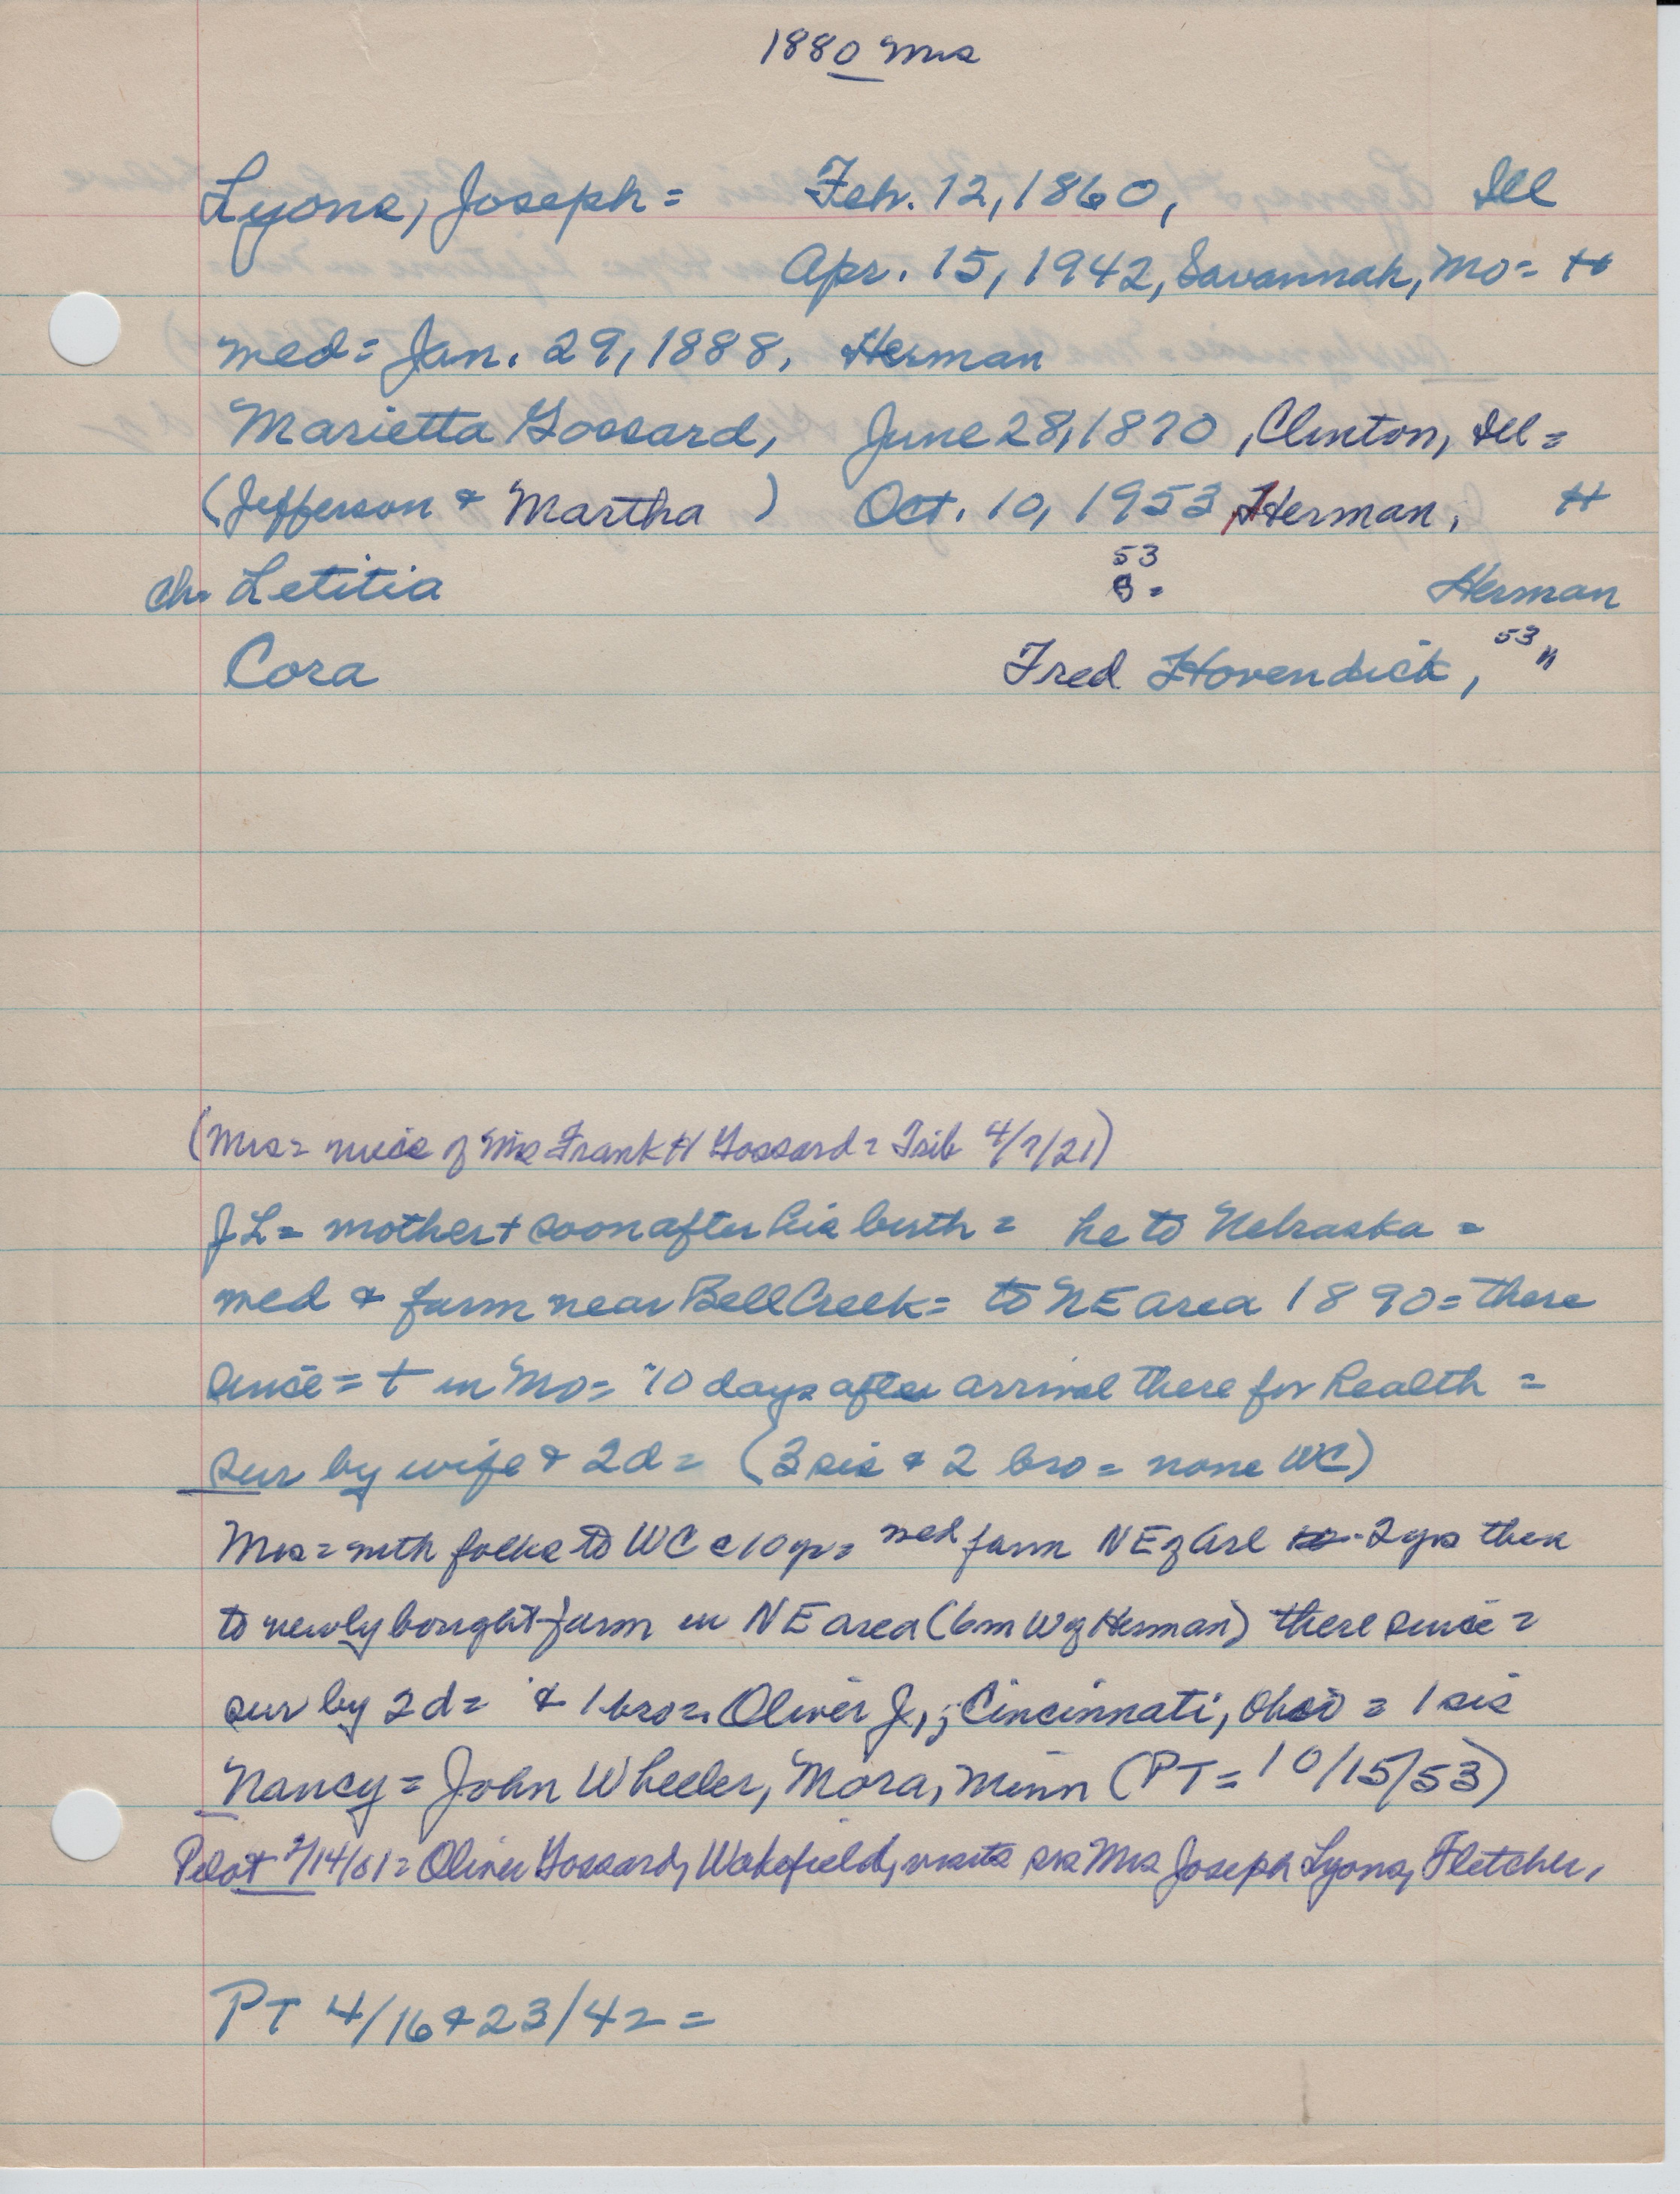 1880 Mrs
Lyons, Joseph = Feb. 12, 1860, Ill
Apr. 15, 1942, Savannah, Mo = H
med = Jan. 29, 1888, Herman
Marietta Gossard, June 28, 1870, Clinton, Ill =
(Jefferson & Martha ) Oct. 10, 1953 Herman, H
53
ch. Letitia B = Herman
Cora Fred Hovendick, 53 "
(Mrs = niece of Mrs Frank H Gossard = Trib 4/7/21)
JL = mother + soon after his birth = he to Nebraska =
med & farm near Bell Creek = to NE area 1890 = there
since = + in Mo = 10 days after arrival there for health =
sur by wife & 2d = (3 sis & 2 bro = none WC)
Mrs = with folks to WC c 10 yr = med farm NE of Arl 2 yrs then
to newly bought farm in NE area (6m W of Herman) there since =
sur by 2d = & 1 bro = Oliver J., Cincinnati, Ohio = 1 sis
Nancy = John Wheeler, Mora, Minn (PT = 10/15/53)
Pilot /14/01 = Oliver Gossard, Wakefield, visits sis Mrs Joseph Lyons, Fletcher,
PT 4/16 & 23/42 =